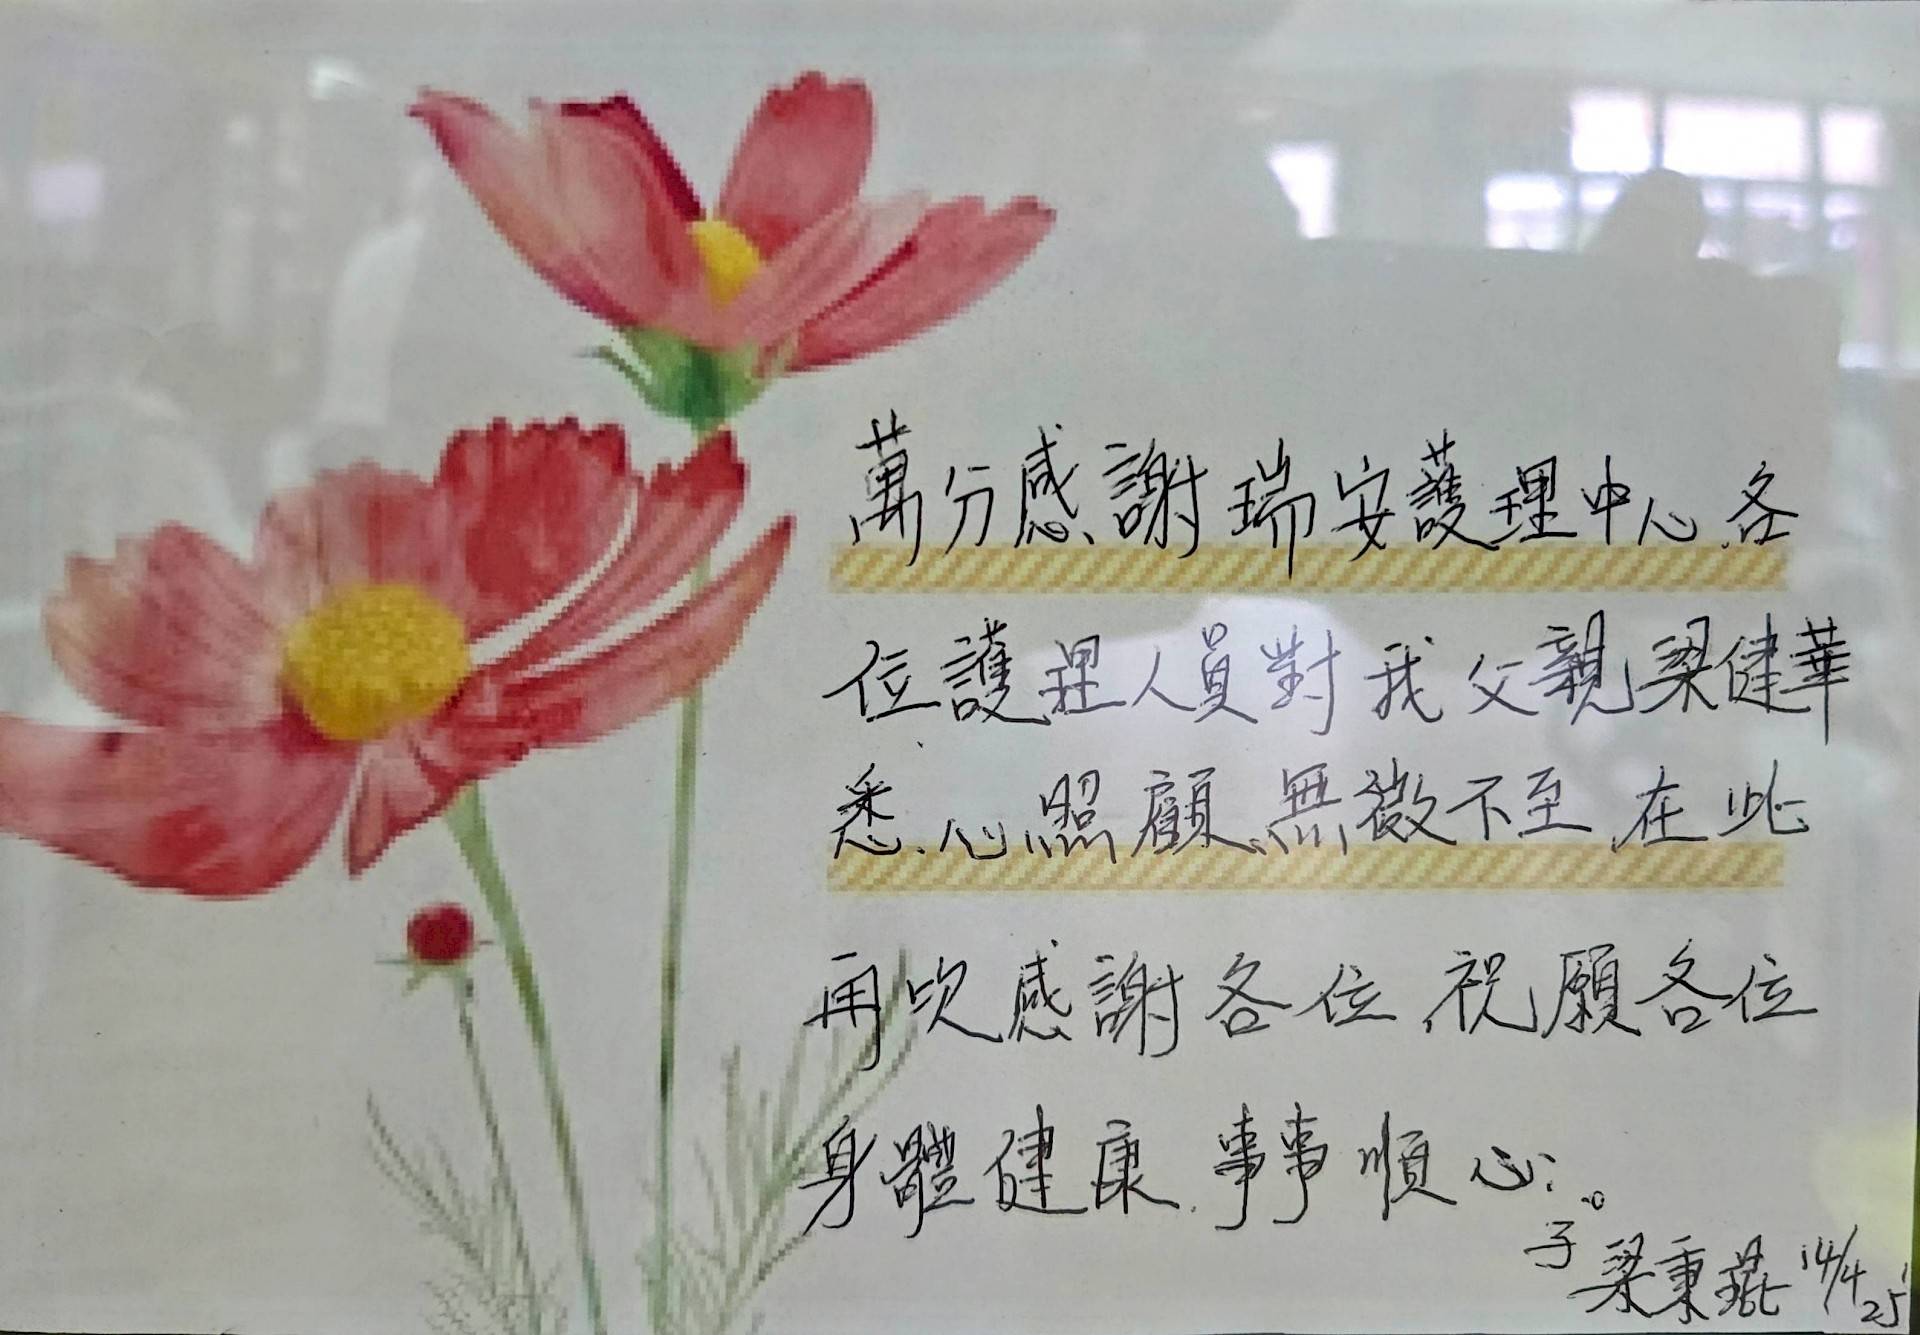 萬分感謝瑞安護理中心各
位護理人員對我父親梁健華
悉心照顧無微不至在此
再次感謝各位祝願各位
身體健康事事順心。
子梁秉琨 14/4 25